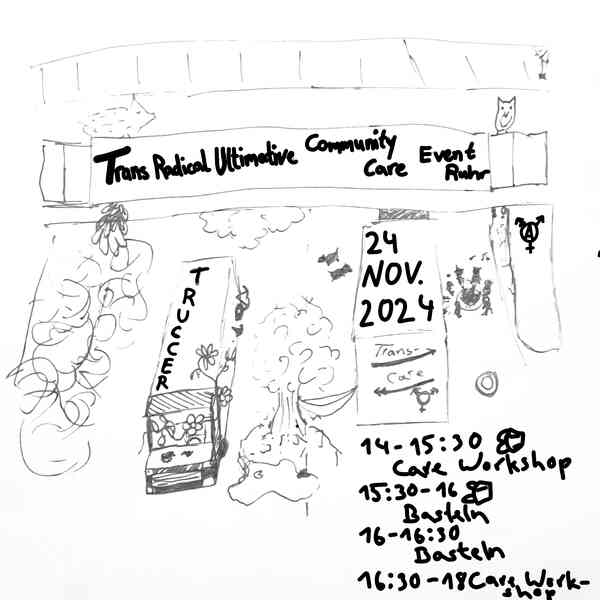 Trans Radical Ultimative Community
Care Event
Ruhr
TRUCCER
24
NOV.
2024
Trans-
Care
A
14-15:30
Care Workshop
15:30-16
Basteln
16-16:30
Basteln
16:30-18 Care Work-
shop